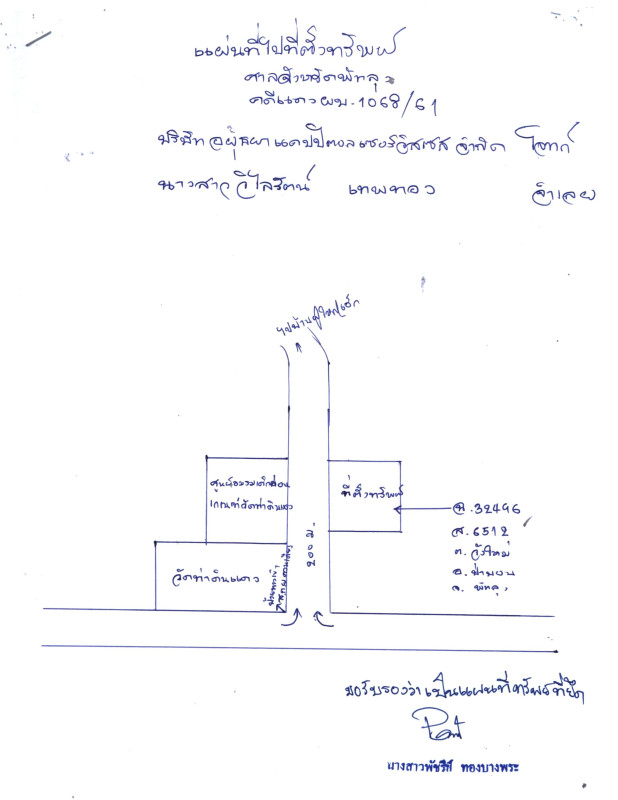 แผนที่ไปที่ตั้งทรัพย์
ศาลจังหวัดพัทลุง
คดีแดง ผบ.1068/61
บริษัท อยุธยา แคปปิตอล เซอร์วิสเซส จำกัด โจทก์
นางสาววิไลรัตน์ เทพทอง จำเลย
ศูนย์อบรมเด็กก่อน
เกณฑ์วัดท่าดินแดง
ที่ตั้งทรัพย์
200 ม.
ฉ.32496
ส.6512
ต. วังใหม่
อ. ป่าบอน
จ. พัทลุง
วัดท่าดินแดง
ขอรับรองว่าเป็นแผนที่ทรัพย์ที่ยึด
นางสาวพัชรี ทองบางพระ